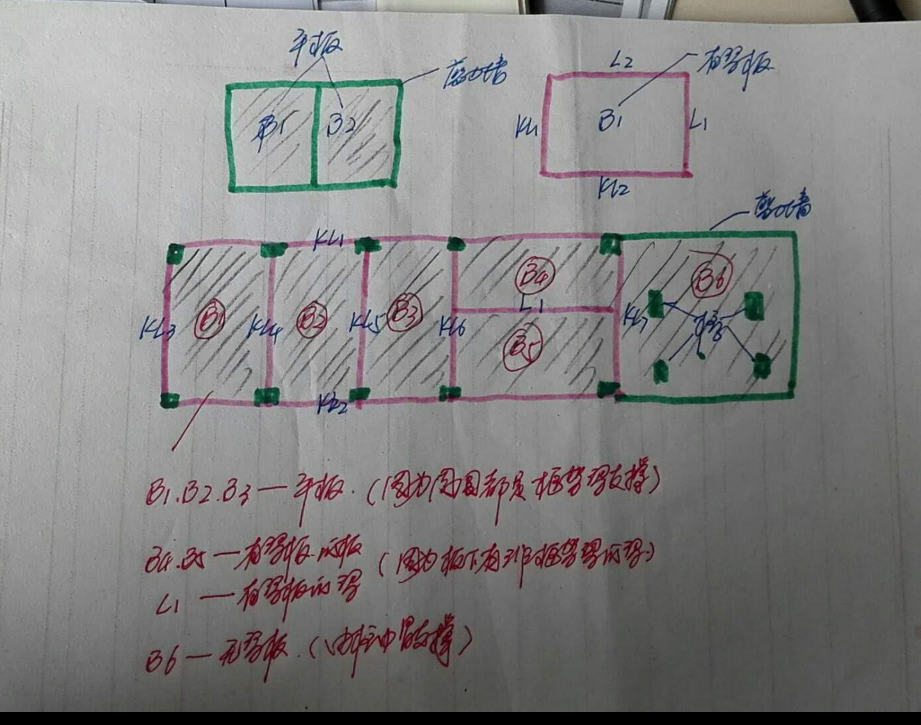 平板
剪力墙
B1
B2
L2
有梁板
KL1
B1
L1
KL2
剪力墙
KL1
B4
B6
L1
KL3
B1
KL4
B2
KL5
B3
KL6
KL7
柱
B5
KL2
B1.B2.B3—平板.(因为周围都是框架梁支撑)
B4.B5—有梁板的板(因为板下有非框架梁的梁)
L1—有梁板的梁
B6—无梁板.(由柱中间支撑)